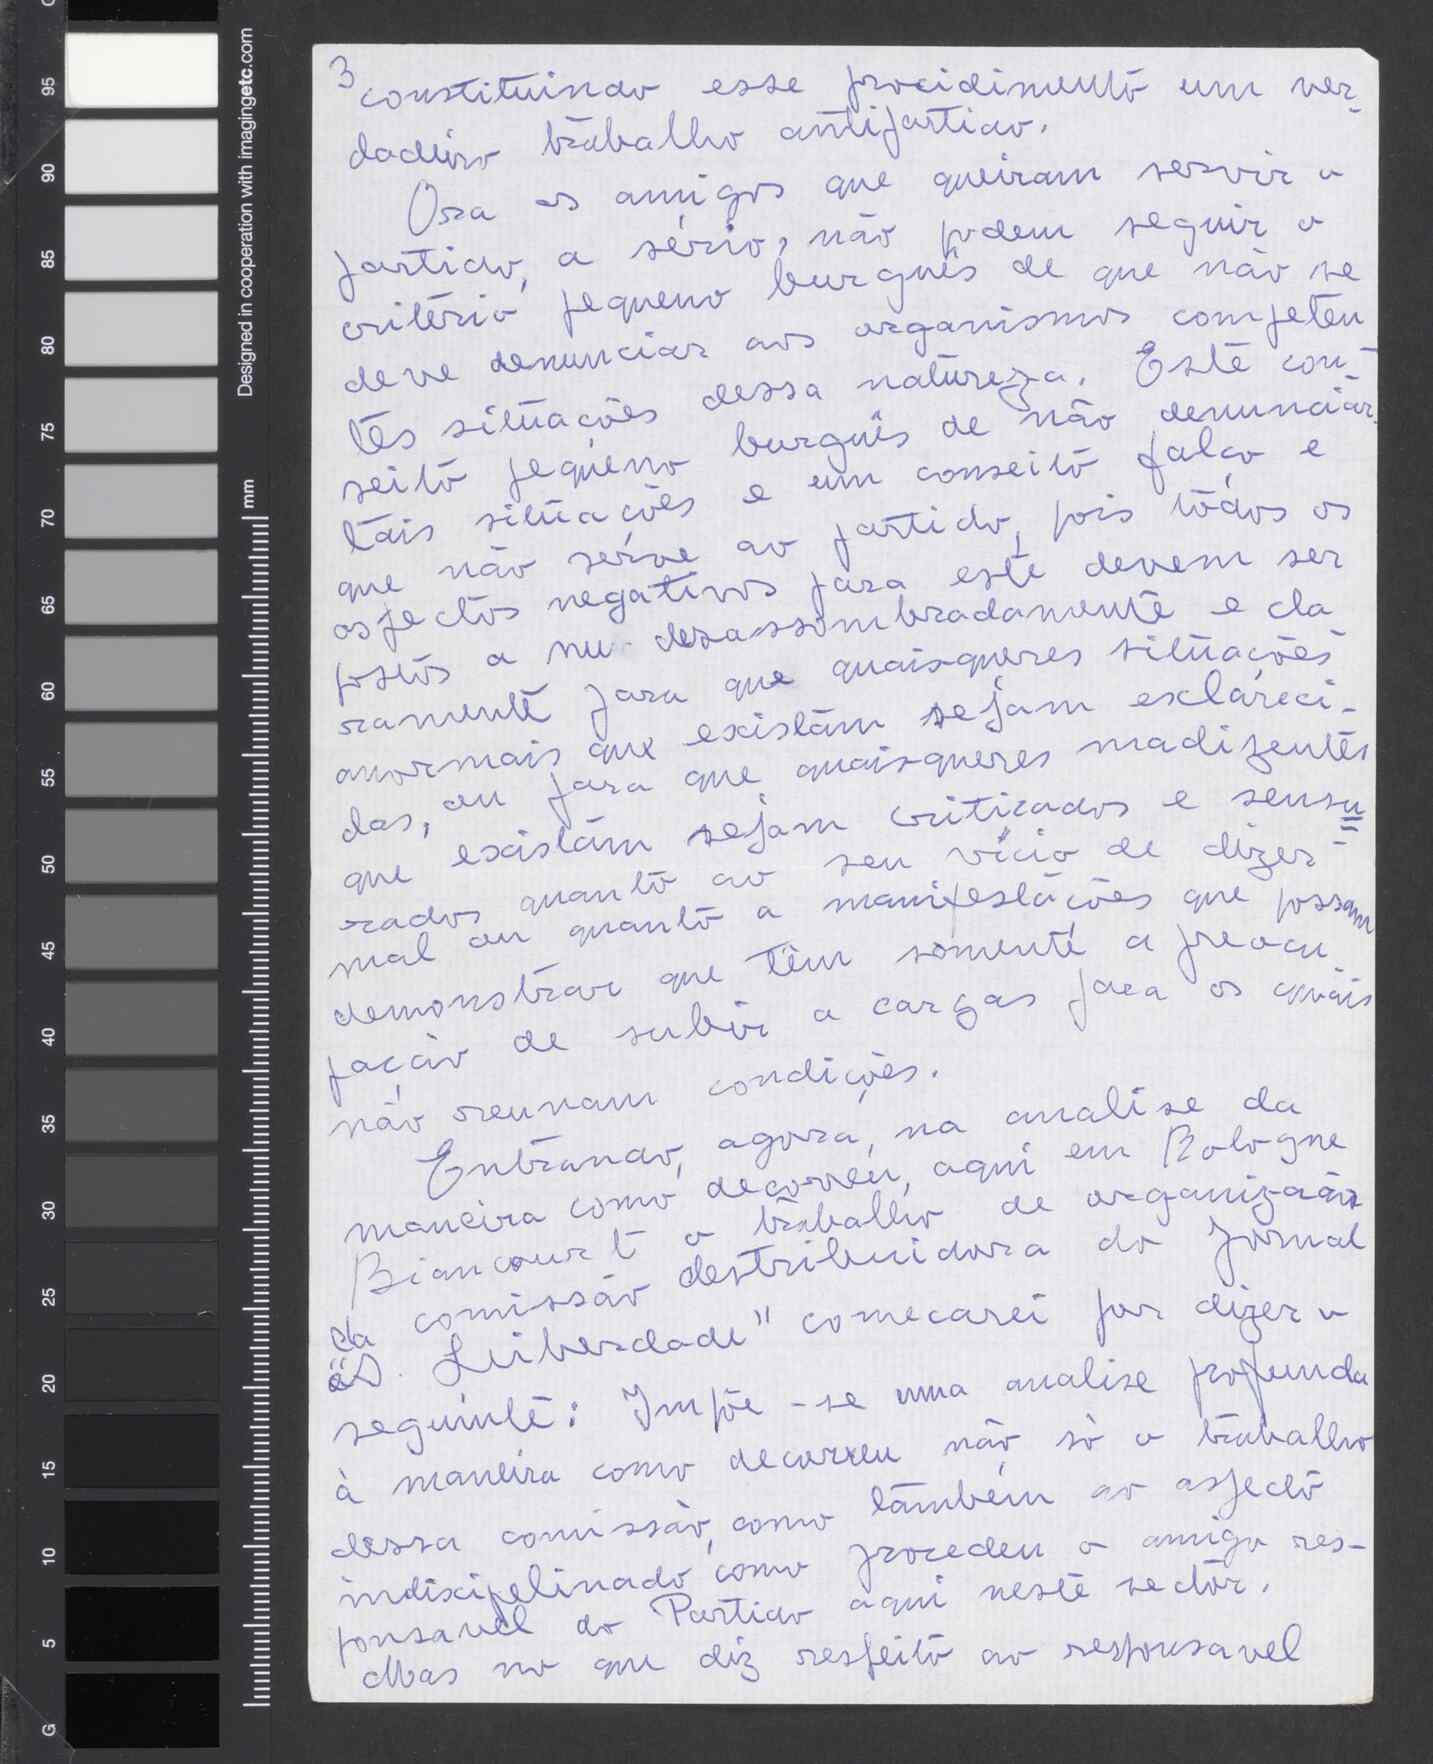 3
constituindo esse procidimento um ver-
dadeiro trabalho antipartido.
Ora os amigos que queiram servir o
partido, a sério, não podem seguir o
critério pequeno burguês de que não se
deve denunciar aos organismos competen
tes situações dessa natureza. Este con-
seito pequeno burguês de não denunciar
tais situações e um conseito falço e
que não serve ao partido, pois todos os
aspectos negativos para este devem ser
postos a nu desassombradamente e cla
ramente para que quaisqueres situações
anormais que existam sejam esclareci-
das, ou para que quaisqueres madizentes
que existam sejam criticados e sensu
rados quanto ao seu vício de dizer
mal ou quanto a manifestações que possam
demonstrar que têm somente a preocu
pação de subir a cargas para os quais
não reunam condições.
Entrando, agora, na analise da
maneira como decorreu, aqui em Bologne
Biancourt o trabalho de organização
da comissão destribuidora do Jornal
"D. Leiberdade" comecarei por dizer o
seguinte: Impõe-se uma analise profunda
à maneira como decorreu não só o trabalho
dessa comissão, como também ao aspecto
indiscipelinado como procedeu o amigo res-
ponsavel do Partido aqui neste sector.
Mas no que diz respeito ao responsavel
Designed in cooperation with imagingetc.com
mm
95
90
85
80
75
70
65
60
55
50
45
40
35
30
25
20
15
10
5
G